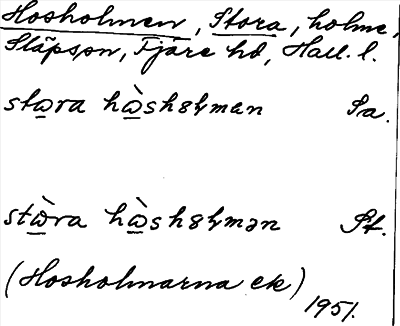 Hosholmen, Stora, holme,
Släps sn, Fjäre hd, Hall. l.
stɷra hɷ̀shɞłmən Sa.
stɷ̀ra hɷ̀shɞłmən St.
(Hosholmarna ek)
1951.